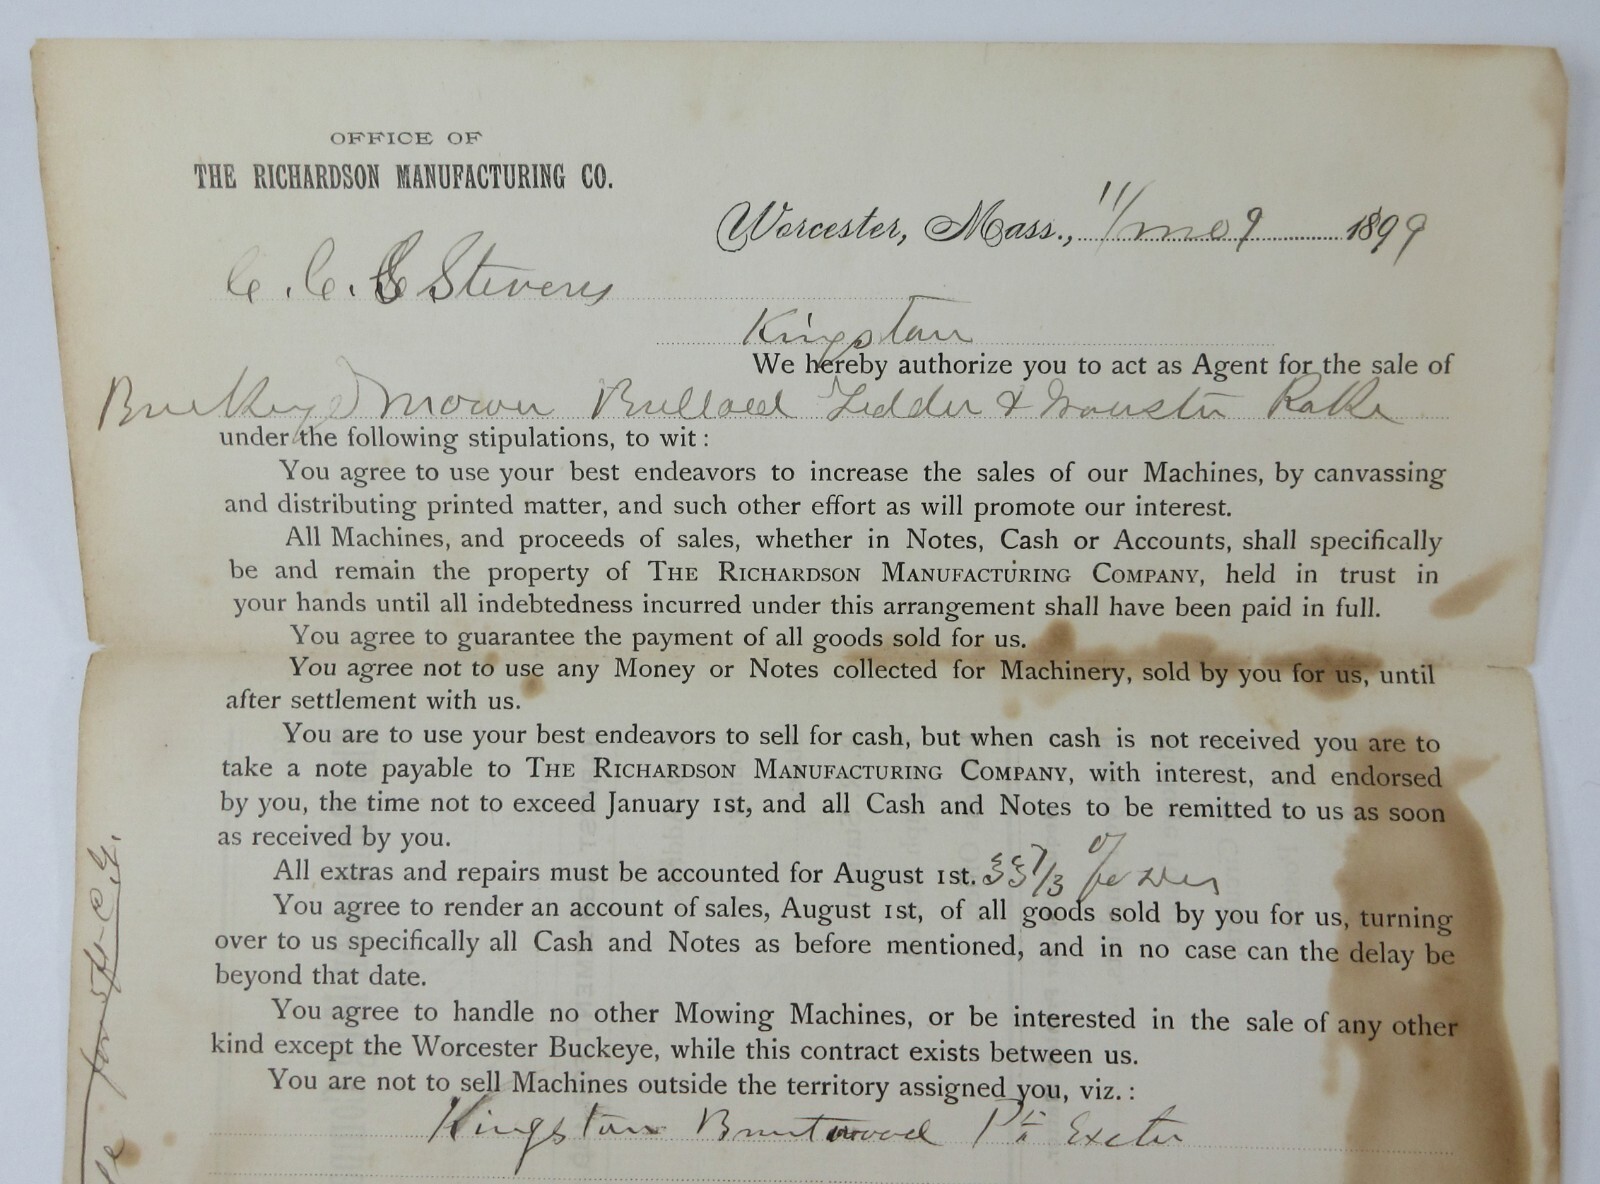 OFFICE OF
THE RICHARDSON MANUFACTURING CO.
Worcester, Mass., 11/mo 9 1899
C. C. Stevens
Kingston
We hereby authorize you to act as Agent for the sale of
Buckeye Mower Bullard Tedder & Worcester Rake
under the following stipulations, to wit:
You agree to use your best endeavors to increase the sales of our Machines, by canvassing
and distributing printed matter, and such other effort as will promote our interest.
All Machines, and proceeds of sales, whether in Notes, Cash or Accounts, shall specifically
be and remain the property of THE RICHARDSON MANUFACTURING COMPANY, held in trust in
your hands until all indebtedness incurred under this arrangement shall have been paid in full.
You agree to guarantee the payment of all goods sold for us.
You agree not to use any Money or Notes collected for Machinery, sold by you for us, until
after settlement with us.
You are to use your best endeavors to sell for cash, but when cash is not received you are to
take a note payable to THE RICHARDSON MANUFACTURING COMPANY, with interest, and endorsed
by you, the time not to exceed January 1st, and all Cash and Notes to be remitted to us as soon
as received by you.
All extras and repairs must be accounted for August 1st. 33 1/3 %
You agree to render an account of sales, August 1st, of all goods sold by you for us, turning
over to us specifically all Cash and Notes as before mentioned, and in no case can the delay be
beyond that date.
You agree to handle no other Mowing Machines, or be interested in the sale of any other
kind except the Worcester Buckeye, while this contract exists between us.
You are not to sell Machines outside the territory assigned you, viz.:
Kingston Brentwood Pt Exeter